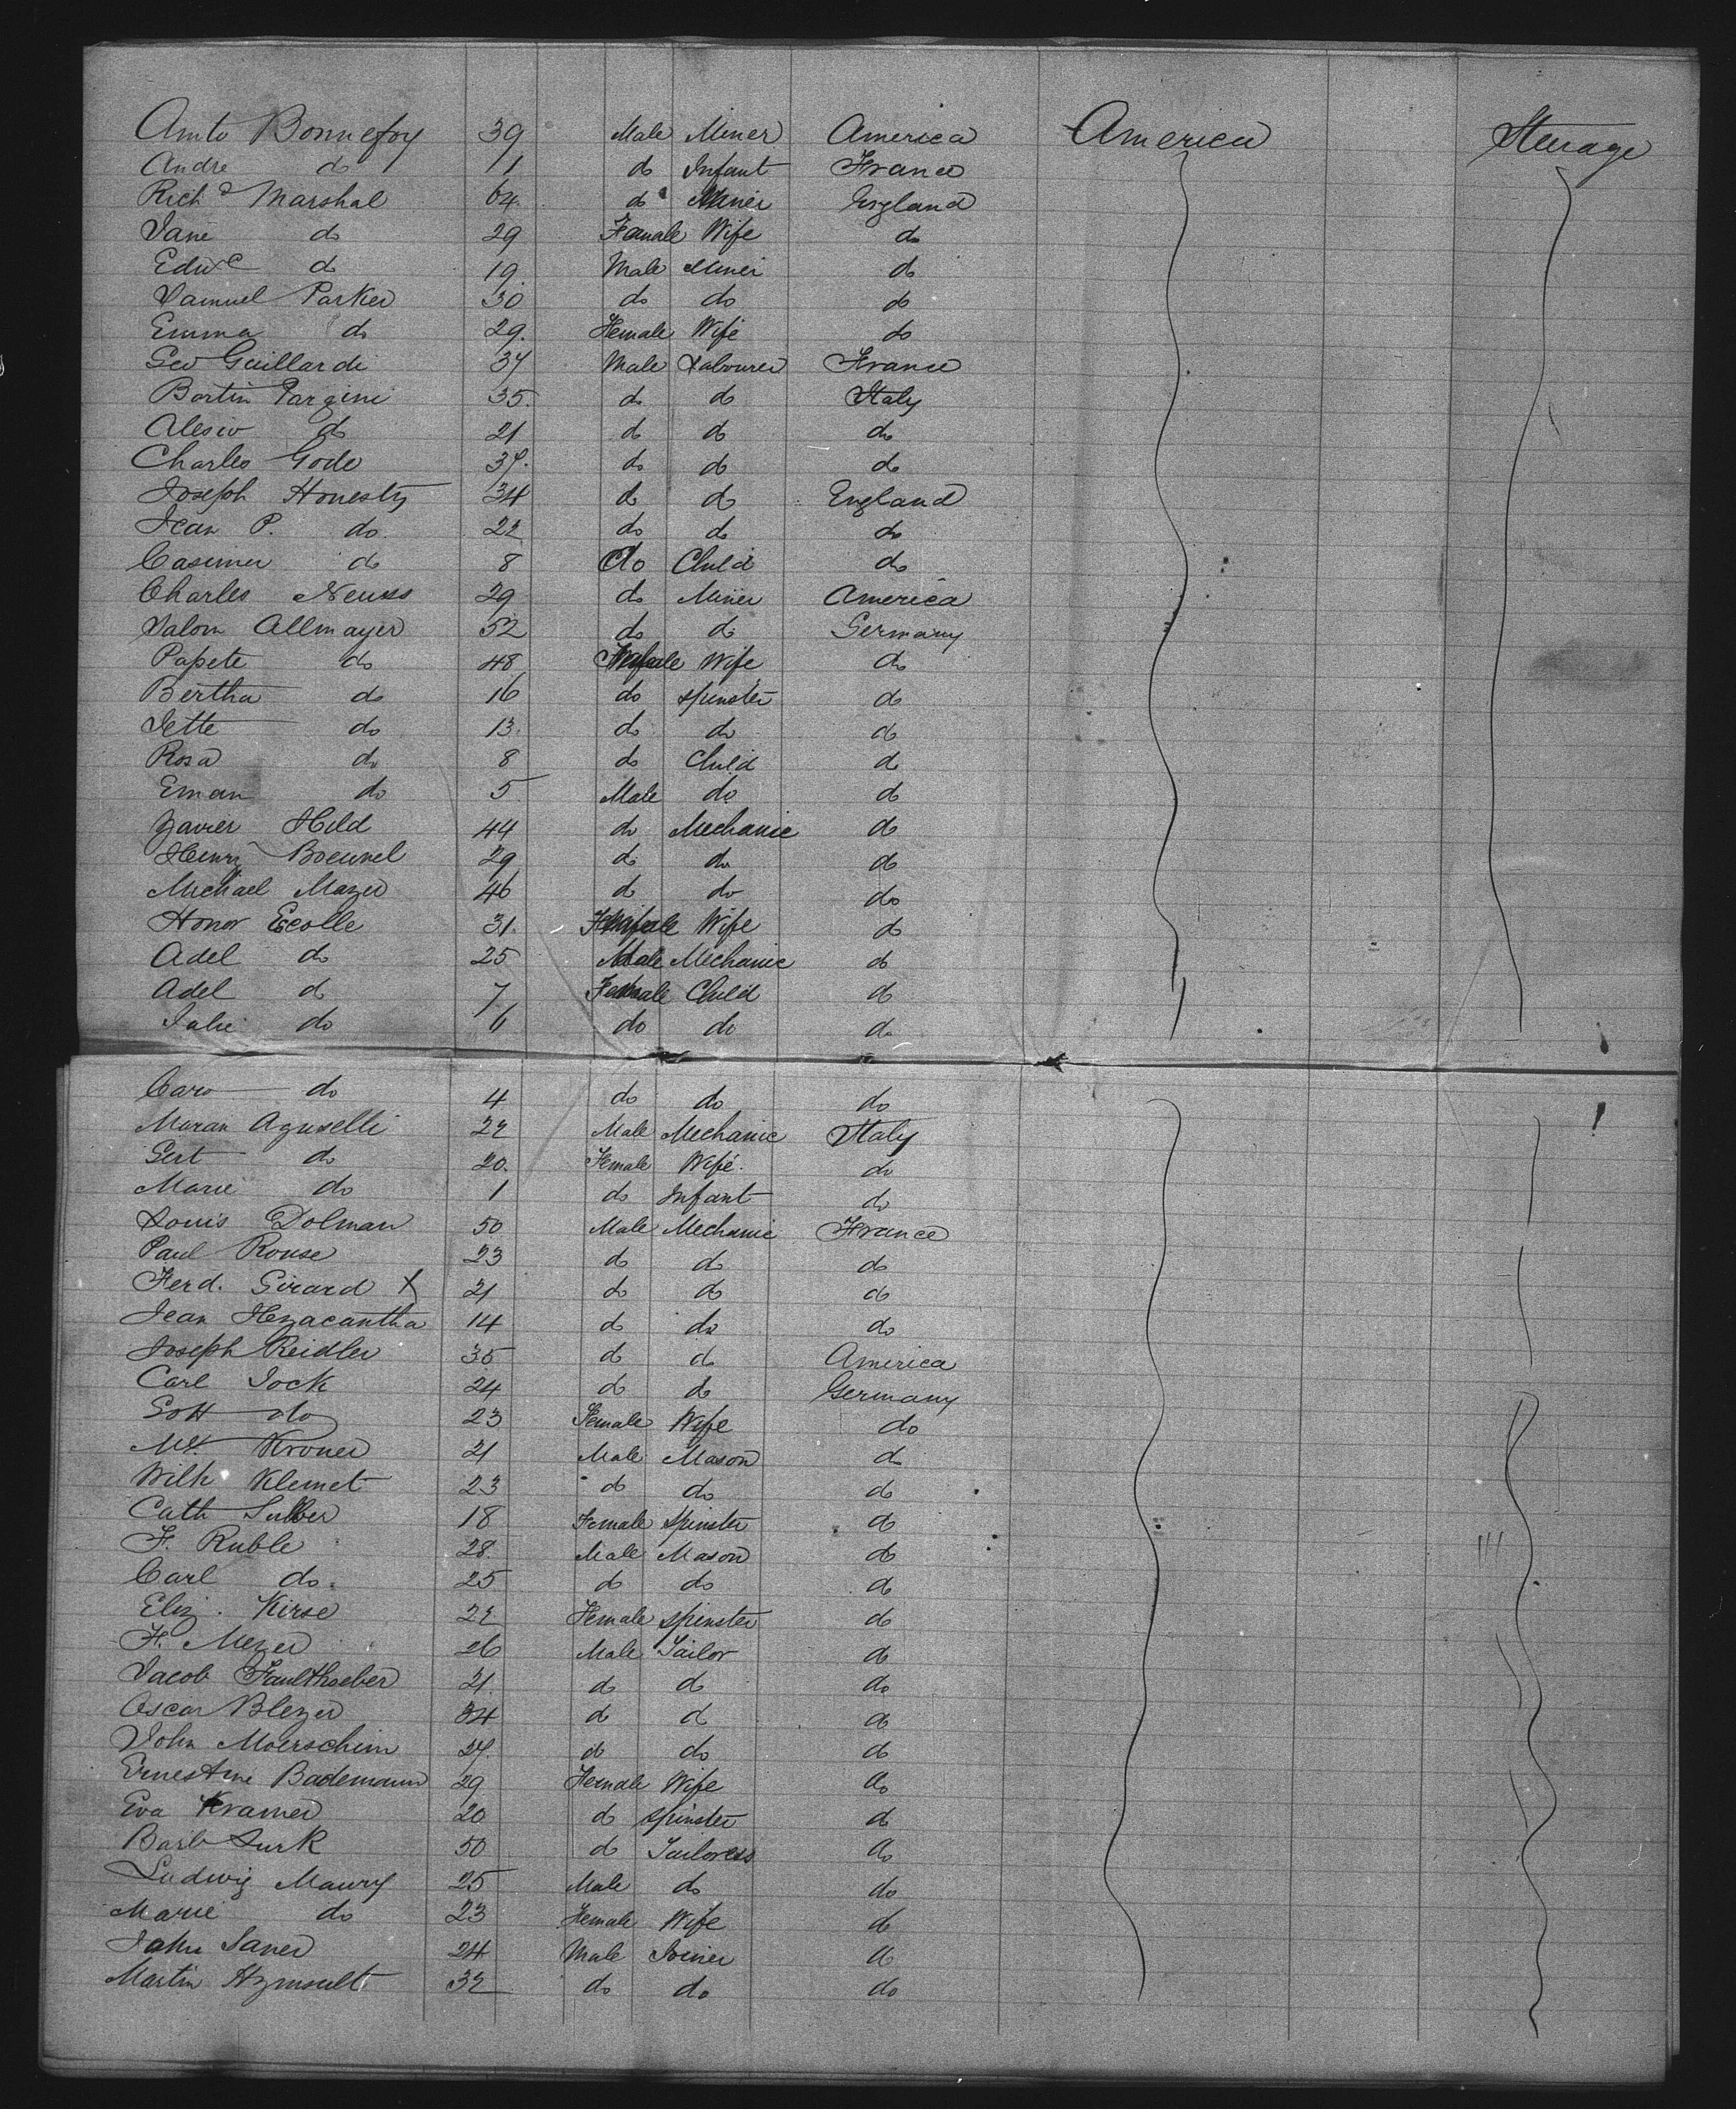 Anto Bonnefoy 39 Male Miner America America Steerage
Andre do 1 do Infant France
Richd Marshal 64 do Miner England
Jane do 29 Female Wife do
Edwd do 19 Male Miner do
Samuel Parker 30 do do do
Emma do 29. Female Wife do
Geo Guillardi 37 Male Labourer France
Bortin Pargini 35. do do Italy
Alesio do 21 do do do
Charles Gode 37. do do do
Joseph Honesty 34 do do England
Jean P. do. 22 do do do
Casimer do 8 do Child do
Charles Neuss 29 do Miner America
Salom Allmayer 52 do do Germany
Papete do 48 Female Wife do
Bertha do 16 do spinster do
Jette do 13. do do do
Rosa do 8 do Child do
Eman do 5 Male do do
Xavier Hild 44 do Mechanic do
Henry Boeunel 29 do do do
Michael Mazer 46 do do do
Honor Ecolle 31. Female Wife do
Adel do 25 Male Mechanic do
Adel do 7 Female Child do
Julie do 6 do do do
Caro do 4 do do do
Maran Aguselli 22 Male Mechanic Italy
Gert do 20. Female Wife. do
Marie do 1 do Infant do
Louis Dolman 50 Male Mechanic France
Paul Rouse 23 do do do
Ferd. Girard X 21 do do do
Jean Hyzacantha 14 do do do
Joseph Reidler 35 do do America
Carl Jock 24 do do Germany
Gott do 23 Female Wife do
Kroner 21 Male Mason do
Wilh Klemet 23 do do do
Cath 18 Female Spinster do
F. Ruble 28. Male Mason do
Carl do. 25 do do do
Eliz. Kirse 22 Female spinster do
F. Mezer 26 Male Tailor do
Jacob Faulthaeber 21. do do do
Oscar Blezer 34 do do do
John Moerschim 27. do do do
Ernestine Bademann 29 Female Wife do
Eva Kramer 20 do spinster do
Barb Lurk 50 do Tailoress do
Ludwig Maury 25 Male do do
Marie do 23 Female Wife do
John Saner 24 Male Joiner do
Martin 32 do do do